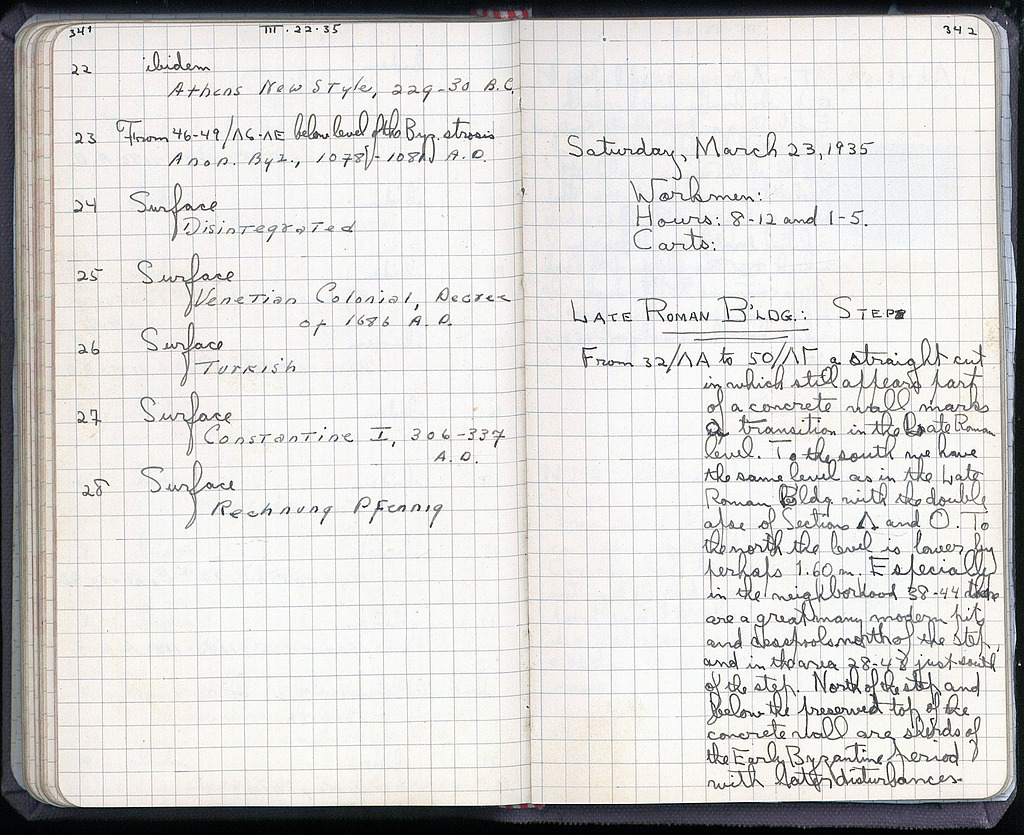 341
III·22·35
22 ibidem
Athens New Style, 229-30 B.C.
23 From 46-49/ΛϚ-ΛΕ below level of the Byz. strosis
Anon. Byz., 1078[-1081] A.D.
24 Surface
Disintegrated
25 Surface
Venetian Colonial, Decree
of 1686 A.D.
26 Surface
Turkish
27 Surface
Constantine I, 306-337
A.D.
28 Surface
Rechnung Pfennig
342
Saturday, March 23, 1935
Workmen:
Hours: 8-12 and 1-5.
Carts:
LATE ROMAN B'LDG.: STEP
From 32/ΛΑ to 50/ΛΓ a straight cut
in which still appears part
of a concrete wall marks
a transition in the Late Roman
level. To the south we have
the same level as in the Late
Roman Bldg with the double
apse of Sections Λ and O. To
the north the level is lower by
perhaps 1.60 m. Especially
in the neighborhood 38-44 there
are a great many modern pits
and cesspools north of the step,
and in the area 28-48 just south
of the step. North of the step and
below the preserved top of the
concrete wall are sherds of
the Early Byzantine period
with later disturbances.